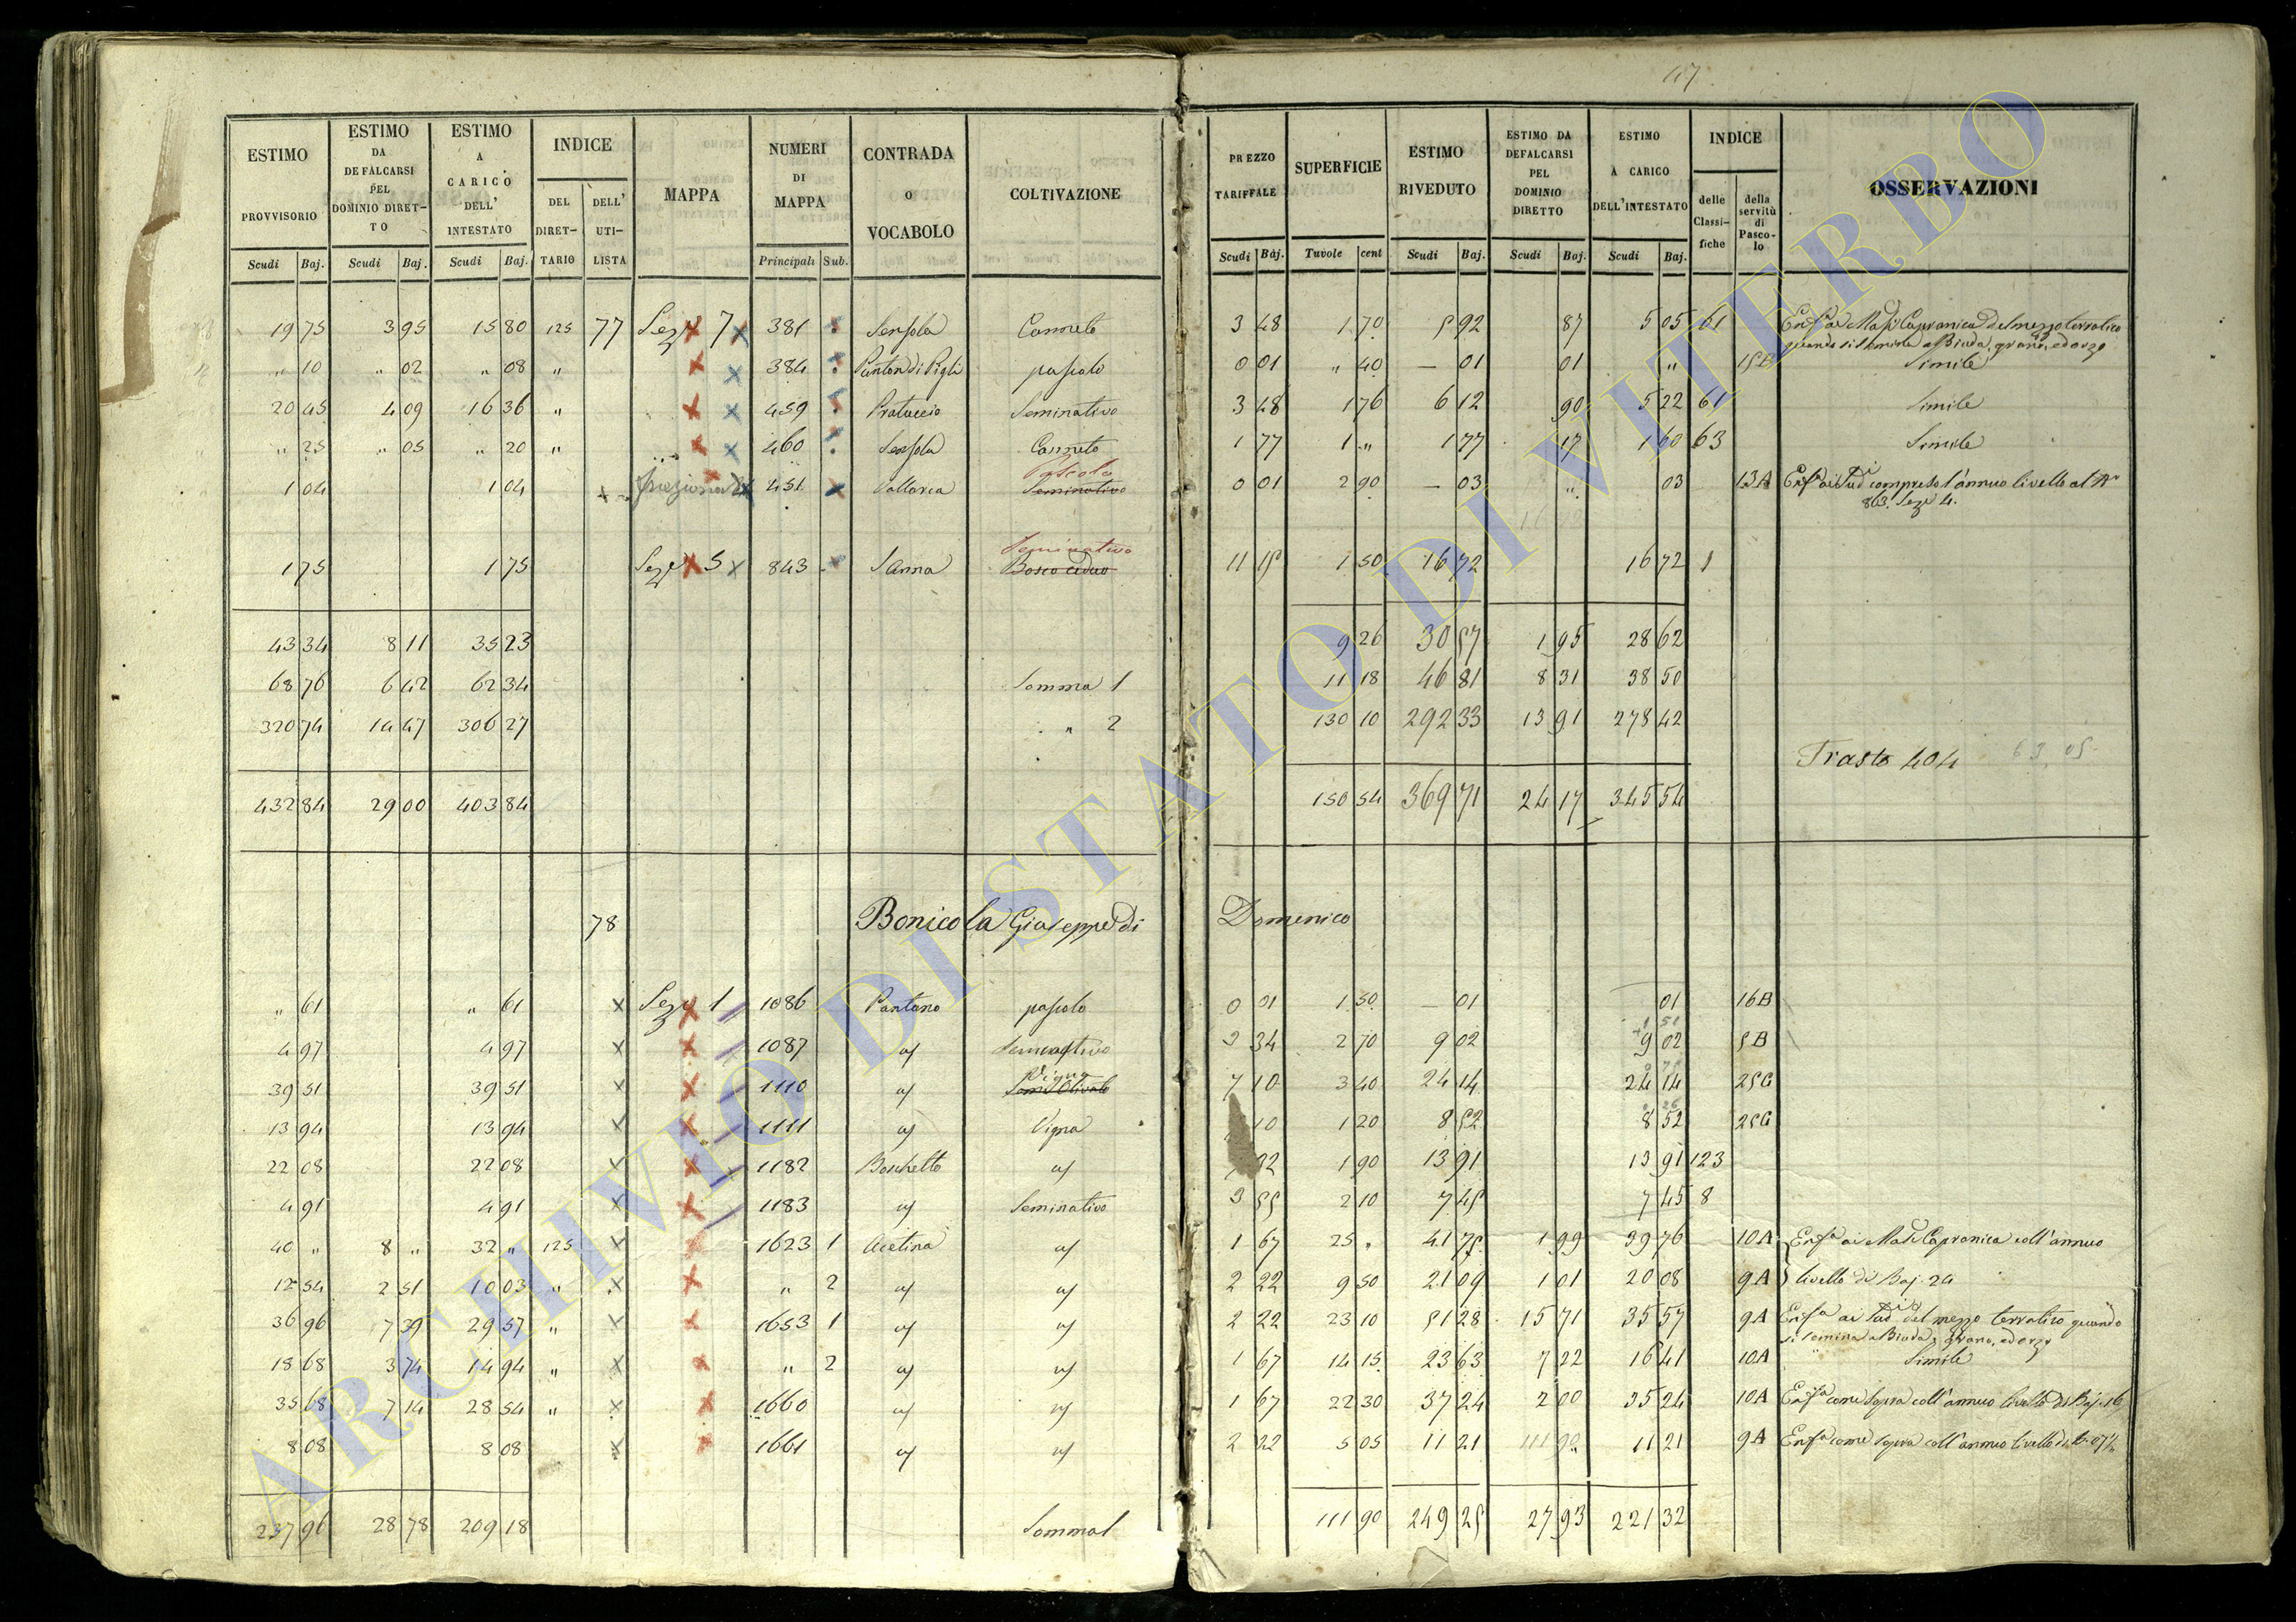 117
ESTIMO PROVVISORIO Scudi Baj. | ESTIMO DA DEFALCARSI PEL DOMINIO DIRET-TO Scudi Baj. | ESTIMO A CARICO DELL' INTESTATO Scudi Baj. | INDICE DEL DIRET-TARIO DELL' UTI-LISTA | MAPPA | NUMERI DI MAPPA Principali Sub. | CONTRADA O VOCABOLO | COLTIVAZIONE | PREZZO TARIFFALE Scudi Baj. | SUPERFICIE Tavole cent | ESTIMO RIVEDUTO Scudi Baj. | ESTIMO DA DEFALCARSI PEL DOMINIO DIRETTO Scudi Baj. | ESTIMO A CARICO DELL'INTESTATO Scudi Baj. | INDICE delle Classi-fiche della servitù di Pasco-lo | OSSERVAZIONI
19 75 | 3 95 | 15 80 | 125 | 77 | Seze 7 | 381 | Canneto | 3 48 | 1 70 | 5 92 | 87 | 5 05 | 61
" 10 | " 02 | " 08 | " | 384 | pascolo | 0 01 | " 40 | — 01 | 01 | " | 15B | Simile
20 45 | 4 09 | 16 36 | " | 459 | Pratuccio | Seminativo | 3 48 | 1 76 | 6 12 | 90 | 5 22 | 61 | Simile
" 25 | " 05 | " 20 | " | 460 | Canneto | 1 77 | 1 " | 1 77 | 17 | 1 60 | 63 | Simile
Pascolo
1 04 | 1 04 | 451 | Seminativo | 0 01 | 2 90 | — 03 | " | 03 | 13A | compreso l'annuo livello al N
863. Seze 4.
Seminativo
1 75 | 1 75 | Seze 5 | 843 | S Anna | Bosco ceduo | 11 15 | 1 50 | 16 72 | 16 72 | 1
43 34 | 8 11 | 35 23 | 9 26 | 30 57 | 1 95 | 28 62
68 76 | 6 42 | 62 34 | Somma 1 | 11 18 | 46 81 | 8 31 | 38 50
320 74 | 14 47 | 306 27 | " 2 | 130 10 | 292 33 | 13 91 | 278 42
Trasto 404 63,05
432 84 | 29 00 | 403 84 | 150 54 | 369 71 | 24 17 | 345 54
78 | Bonicola Giuseppe di Domenico
" 61 | " 61 | Seze 1 | 1086 | Pantano | pascolo | 0 01 | 1 50 | — 01 | 01 | 16B
4 97 | 4 97 | 1087 | Seminativo | 3 34 | 2 70 | 9 02 | 9 02 | 5B
Vigna
39 51 | 39 51 | 1110 | 7 10 | 3 40 | 24 14 | 24 14 | 25G
13 94 | 13 94 | 1111 | Vigna | 10 | 1 20 | 8 52 | 8 52 | 25G
22 08 | 22 08 | 1182 | Boschetto | 32 | 1 90 | 13 91 | 13 91 | 123
4 91 | 4 91 | 1183 | Seminativo | 3 55 | 2 10 | 7 45 | 7 45 | 8
40 " | 8 " | 32 " | 125 | 1623 1 | Acetina | 1 67 | 25 " | 41 75 | 1 99 | 39 76 | 10A | Capranica coll'annuo
12 54 | 2 51 | 10 03 | " | " 2 | 2 22 | 9 50 | 21 09 | 1 01 | 20 08 | 9A | livello di Baj. 24
36 96 | 7 39 | 29 57 | " | 1653 1 | 2 22 | 23 10 | 51 28 | 15 71 | 35 57 | 9A | del mezzo terratico quando
si semina a Biada, grano, ed orzo
18 68 | 3 74 | 14 94 | " | " 2 | 1 67 | 14 15 | 23 63 | 7 22 | 16 41 | 10A | Simile
35 68 | 7 14 | 28 54 | " | 1660 | 1 67 | 22 30 | 37 24 | 2 00 | 35 24 | 10A | come sopra coll'annuo livello di Baj. 16
8 08 | 8 08 | 1661 | 2 22 | 5 05 | 11 21 | 11 21 | 9A | come sopra coll'annuo livello di
237 96 | 28 78 | 209 18 | Somma 1 | 111 90 | 249 25 | 27 93 | 221 32
ARCHIVIO DI STATO DI VITERBO